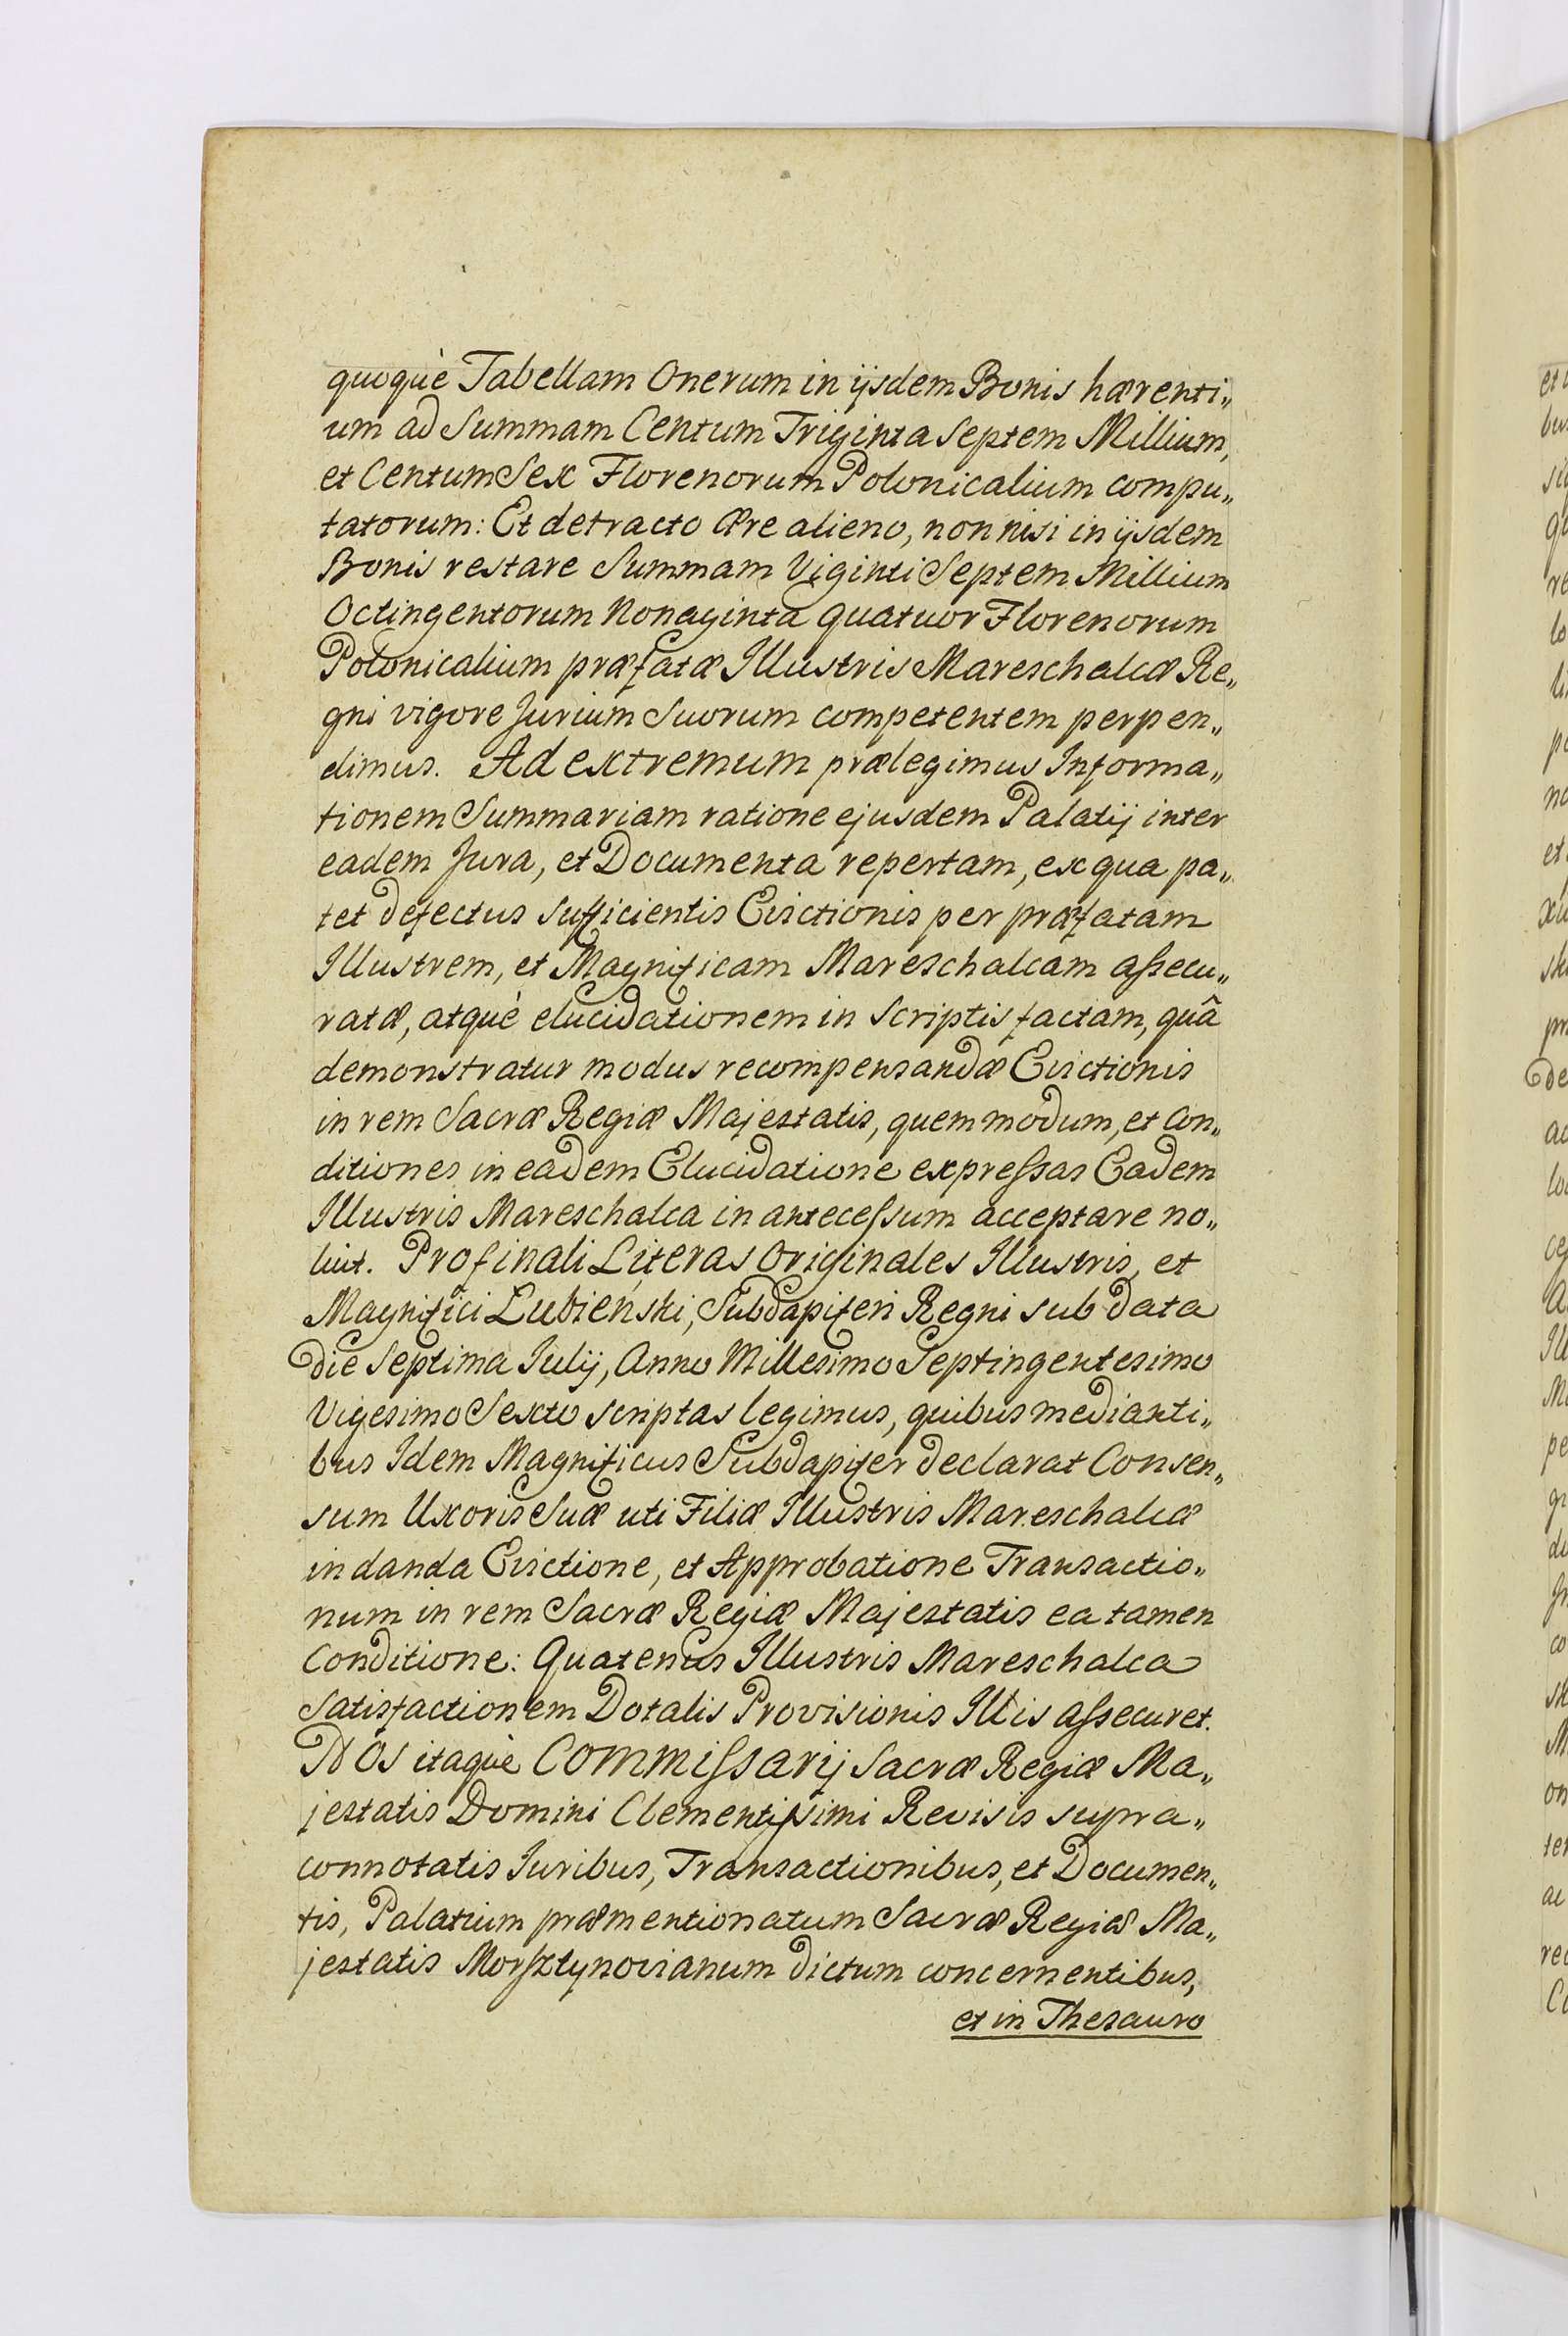 quoquè Tabellam Onerum in ijsdem Bonis hærenti„
um ad Summam Centum Triginta Septem Millium,
et Centum Sex Florenorum Polonicalium compu„
tatorum: Et detracto Ære alieno, non nisi in ijsdem
Bonis restare Summam Viginti Septem Millium
Octingentorum Nonaginta quatuor Florenorum
Polonicalium præfatæ Illustris Mareschalcæ Re„
gni vigore Jurium Suorum competentem perpen„
dimus. Ad extremum prælegimus Informa„
tionem Summariam ratione ejusdem Palatij inter
eadem Jura, et Documenta repertam, ex qua pa„
tet defectus sufficientis Evictionis per præfatam
Illustrem, et Magnificam Mareschalcam aſsecu„
ratæ, atquè elucidationem in Scriptis factam, quâ
demonstratur modus recompensandæ Evictionis
in rem Sacræ Regiæ Majestatis, quem modum, et Con„
ditiones in eadem Elucidatione expreſsas Eadem
Illustris Mareschalca in anteceſsum acceptare no„
luit. Pro finali Literas Originales Illustris, et
Magnifici Łubieński, Subdapiferi Regni sub data
die Septima Julij, Anno Millesimo Septingentesimo
Vigesimo Sexto scriptas legimus, quibus medianti„
bus Idem Magnificus Subdapifer declarat Consen„
sum Uxoris Suæ uti Filiæ Illustris Mareschalcæ
in danda Evictione, et Approbatione Transactio„
num in rem Sacræ Regiæ Majestatis ea tamen
Conditione: Quatenus Illustris Mareschalca
Satisfactionem Dotalis Provisionis Illis aſsecuret.
Nos itaquè Commiſsarij Sacræ Regiæ Ma„
jestatis Domini Clementiſsimi Revisis supra„
connotatis Juribus, Transactionibus, et Documen„
tis, Palatium præmentionatum Sacræ Regiæ Ma„
jestatis Morſztynovianum dictum concernentibus,
et in Thesauro